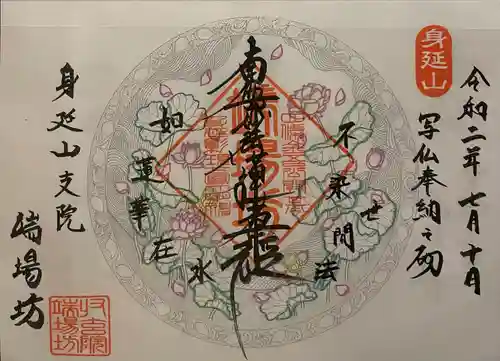 令和二年 七月 十日
写仏奉納之砌
身延山
不染世間法
南無妙法蓮華経
如蓮華在水
身延山支院
端場坊
端場坊